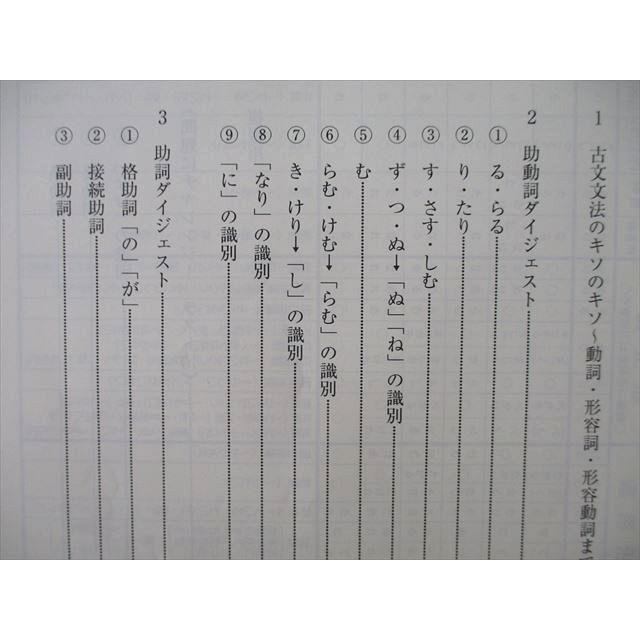 1 古文文法のキソのキソ～動詞・形容詞・形容動詞まで
2 助動詞ダイジェスト
① る・らる
② り・たり
③ す・さす・しむ
④ ず・つ・ぬ→「ぬ」「ね」の識別
⑤ む
⑥ らむ・けむ→「らむ」の識別
⑦ き・けり→「し」の識別
⑧ 「なり」の識別
⑨ 「に」の識別
3 助詞ダイジェスト
① 格助詞「の」「が」
② 接続助詞
③ 副助詞